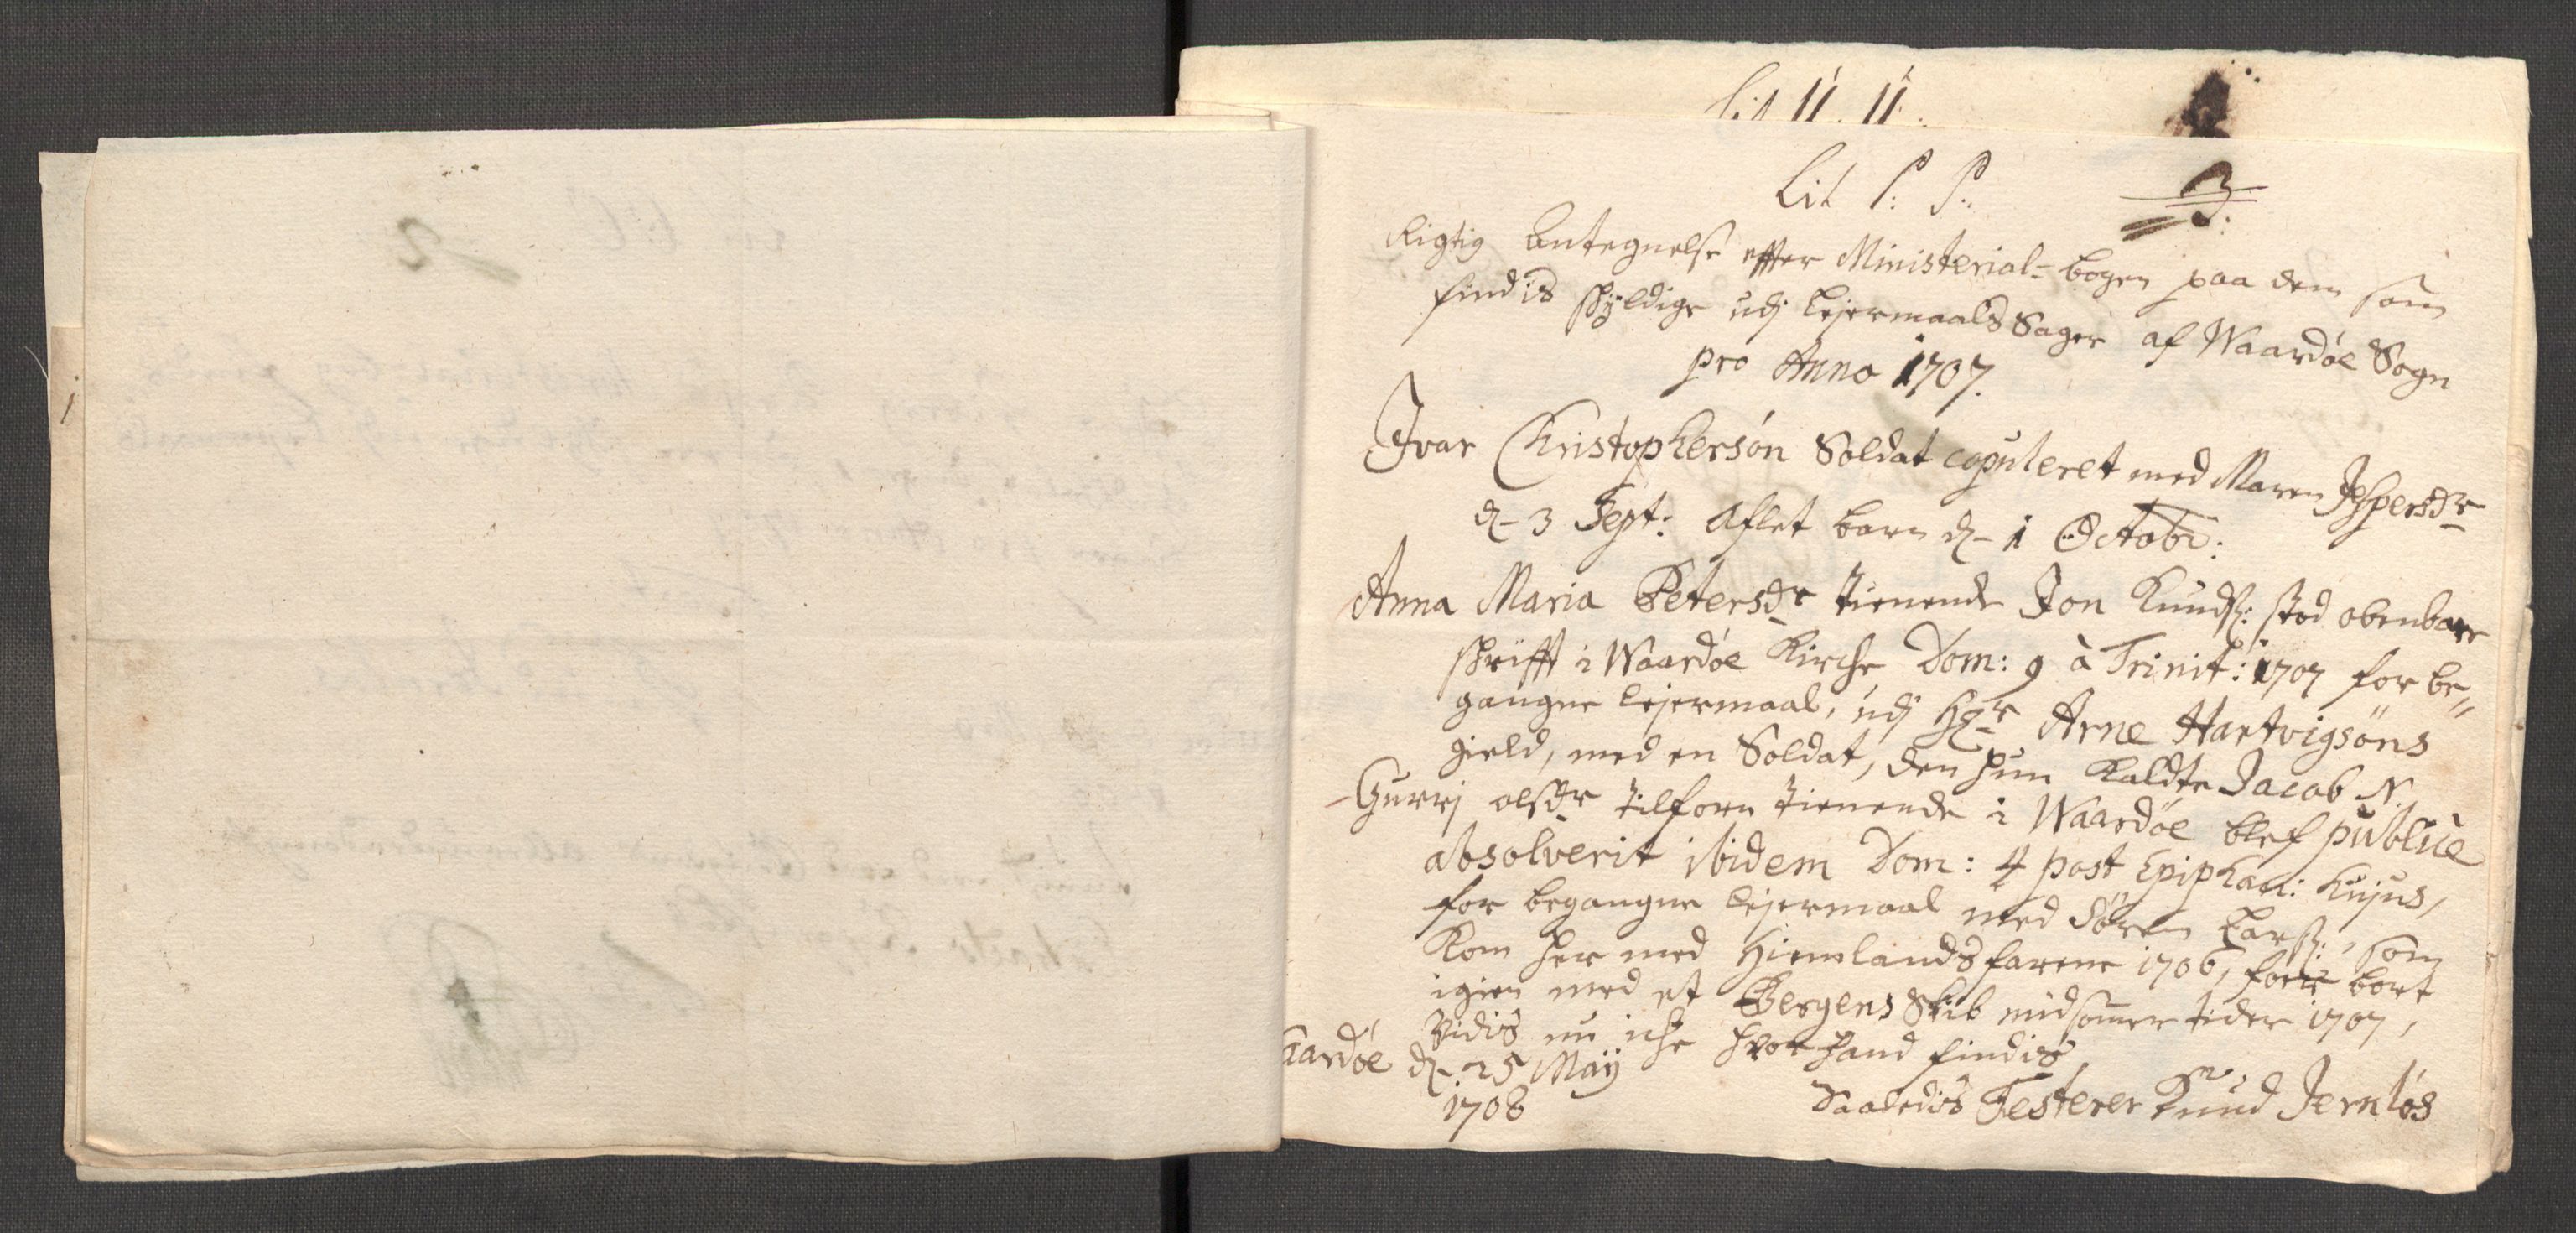 Lit U. U.
Lit P: P:
3.
Rigtig Antegnelse effter Ministerial-bogen paa dem som
findis skyldige udj Lejermaals Sager af Waardöe Sogn
pro Anno 1707.
Ivar Christophersön Soldat copuleret med Maren Jespersdr
d- 3 Sept: Aflet barn d- 1 Octobr:
Anna Maria Petersdr tienende Jon Knuds: stod obenbare
skrifft i Waardöe Kirche Dom: 9 à Trinit: 1707 for be„
gangne Lejermaal, udj Hr Arne Hartvigsöns
gield, med en Soldat, den hun kaldte Jacob N.
Gurrj olsdr tilforn tienende i Waardöe blef publicè
absolverit ibidem Dom: 4 post Epiphan: hujus,
for begangne Lejermaal med Sören Larss:, som
kom her med Hiemlandsfarene 1706, foer bort
igien med et Bergens Skib midsommers tider 1707,
vidis nu iche hvor hand findis
aardöe d- 25 Maij
1708
Saaledis Testerer Knud Jernlös
1